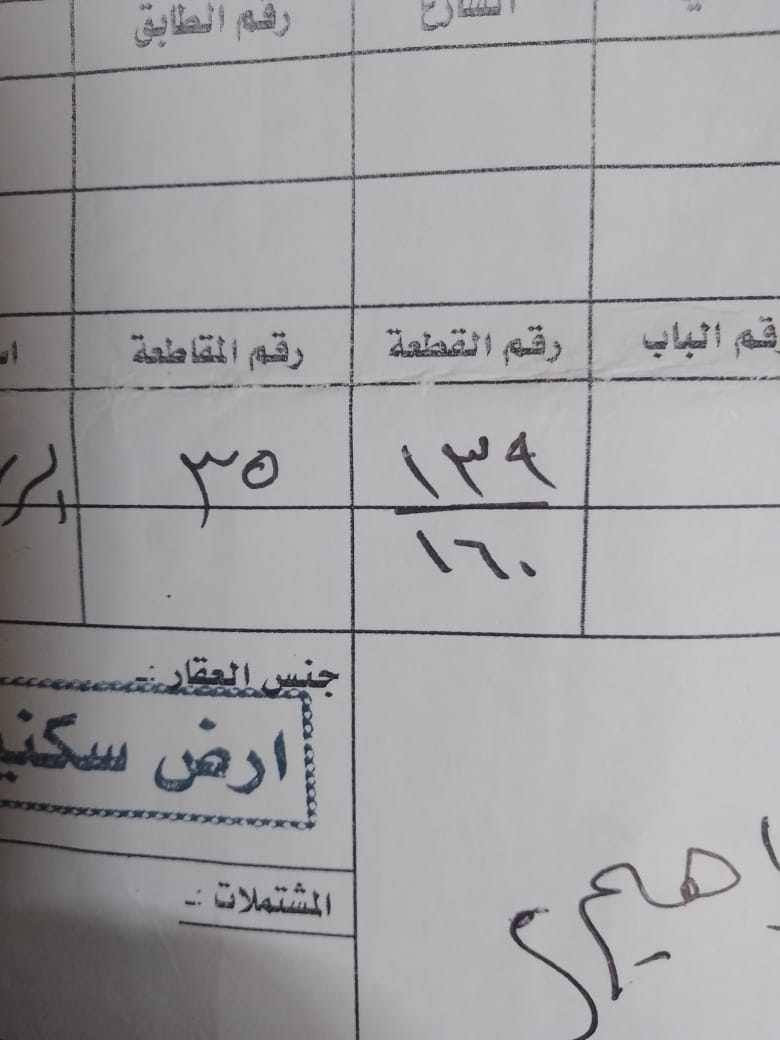 الشارع رقم الطابق
رقم الباب رقم القطعة رقم المقاطعة
١٣٩ ٣٥
١٦٠
جنس العقار :-
ارض سكنية
المشتملات :-